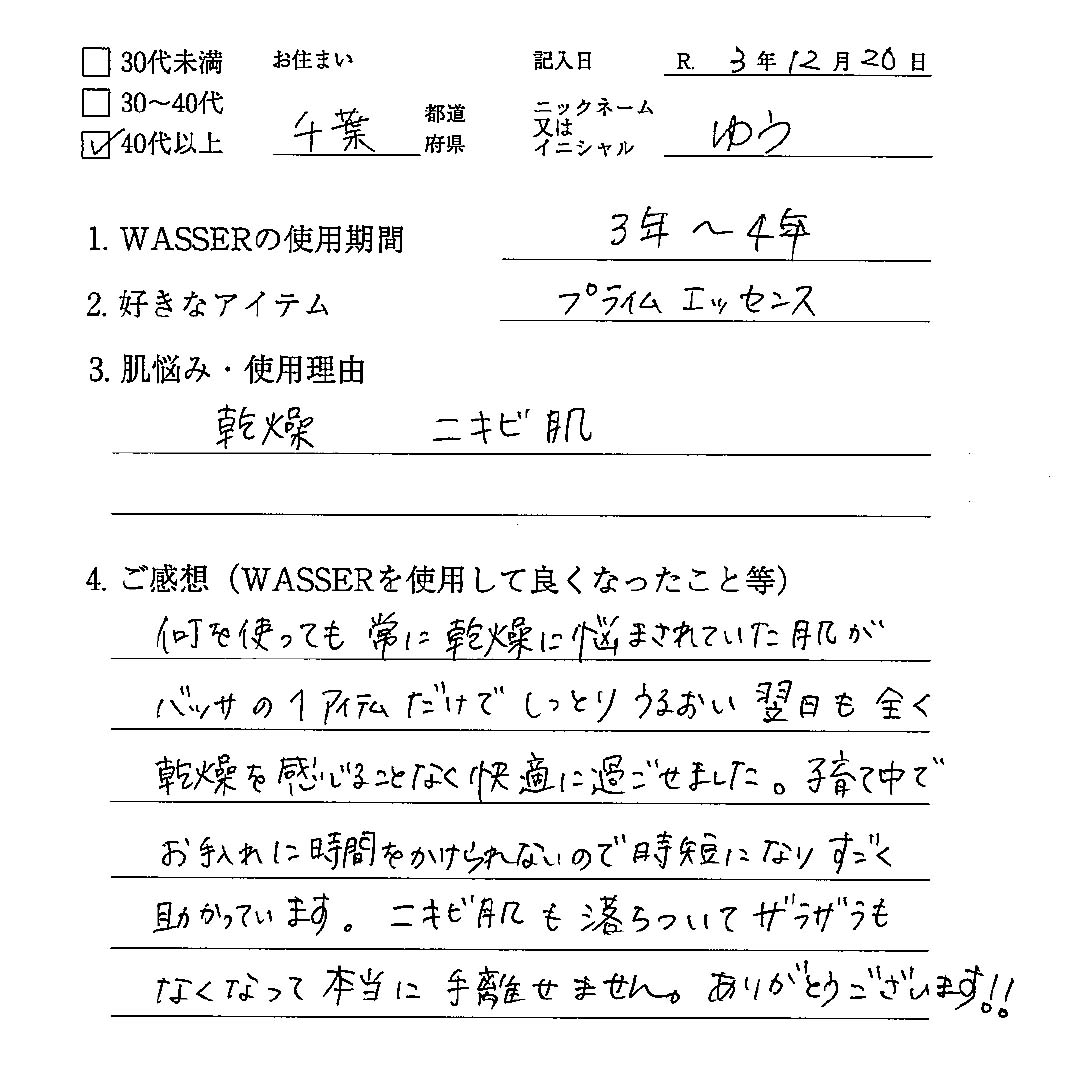 □ 30代未満 お住まい 記入日 R. 3年12月20日
□ 30〜40代 千葉 都道府県 ニックネーム又はイニシャル ゆう
☑ 40代以上
1. WASSERの使用期間 3年〜4年
2. 好きなアイテム プライムエッセンス
3. 肌悩み・使用理由
乾燥 ニキビ肌
4. ご感想（WASSERを使用して良くなったこと等）
何を使っても常に乾燥に悩まされていた肌が
バッサの1アイテムだけでしっとりうるおい翌日も全く
乾燥を感じることなく快適に過ごせました。子育て中で
お手入れに時間をかけられないので時短になりすごく
助かっています。ニキビ肌も落ちついてザラザラも
なくなって本当に手離せません。ありがとうございます!!